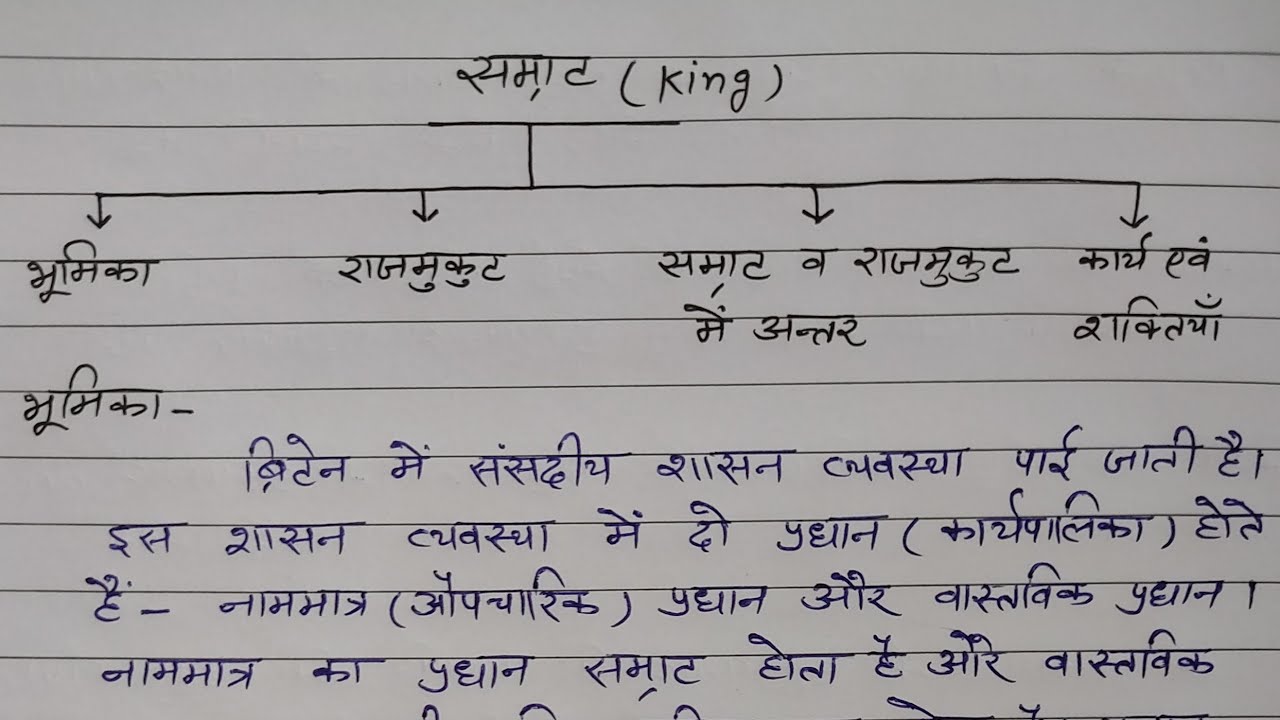 सम्राट (King)
भूमिका राजमुकुट सम्राट व राजमुकुट कार्य एवं
में अन्तर शक्तियाँ
भूमिका -
ब्रिटेन में संसदीय शासन व्यवस्था पाई जाती है।
इस शासन व्यवस्था में दो प्रधान (कार्यपालिका) होते
हैं - नाममात्र (औपचारिक) प्रधान और वास्तविक प्रधान ।
नाममात्र का प्रधान सम्राट होता है और वास्तविक